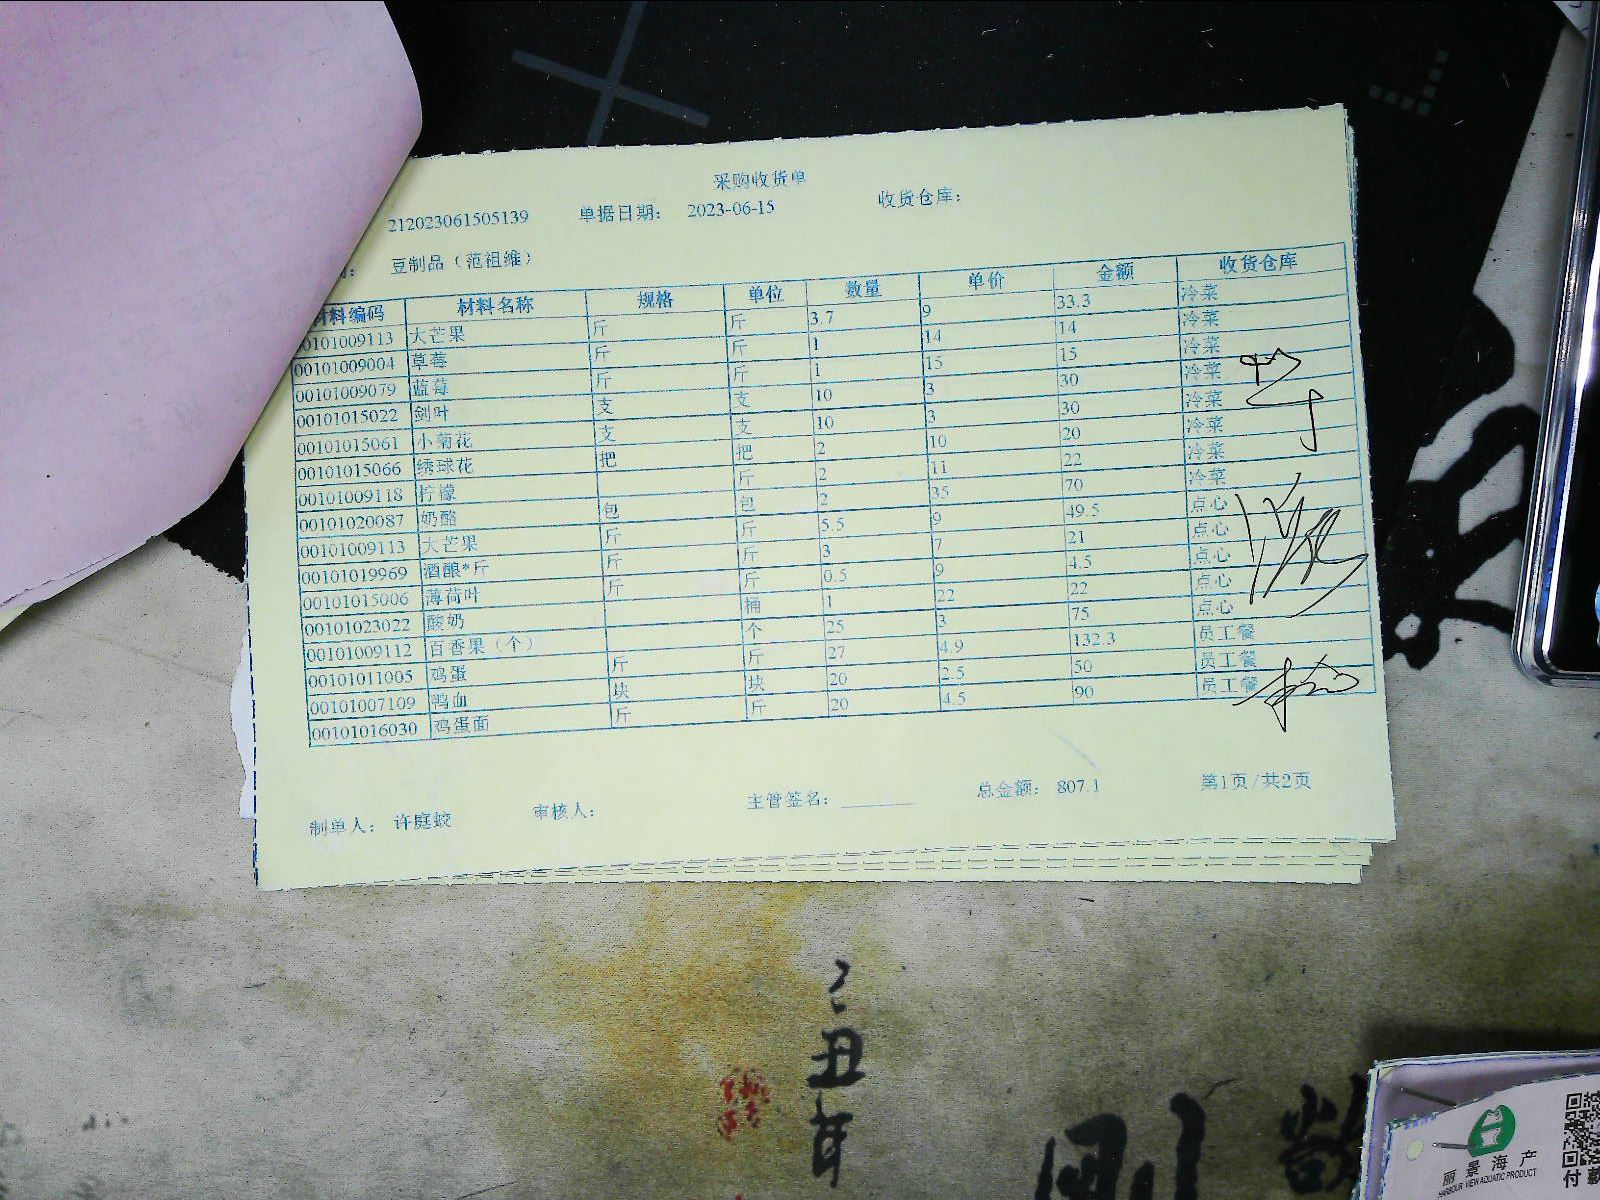 采购收货单
212023061505139 单据日期: 2023-06-15 收货仓库:
豆制品（范祖维）
材料编码 材料名称 规格 单位 数量 单价 金额 收货仓库
00101009113 大芒果 斤 斤 3.7 9 33.3 冷菜
00101009004 草莓 斤 斤 1 14 14 冷菜
00101009079 蓝莓 斤 斤 1 15 15 冷菜
00101015022 剑叶 支 支 10 3 30 冷菜
00101015061 小菊花 支 支 10 3 30 冷菜
00101015066 绣球花 把 把 2 10 20 冷菜
00101009118 柠檬 斤 2 11 22 冷菜
00101020087 奶酪 包 包 2 35 70 冷菜
00101009113 大芒果 斤 斤 5.5 9 49.5 点心
00101019969 酒酿*斤 斤 斤 3 7 21 点心
00101015006 薄荷叶 斤 斤 0.5 9 4.5 点心
00101023022 酸奶 桶 1 22 22 点心
00101009112 百香果（个） 个 25 3 75 点心
00101011005 鸡蛋 斤 斤 27 4.9 132.3 员工餐
00101007109 鸭血 块 块 20 2.5 50 员工餐
00101016030 鸡蛋面 斤 斤 20 4.5 90 员工餐
制单人: 许庭蛟 审核人: 主管签名: 总金额: 807.1 第1页/共2页
丑年
丽景海产
HARBOUR VIEW AQUATIC PRODUCT
付